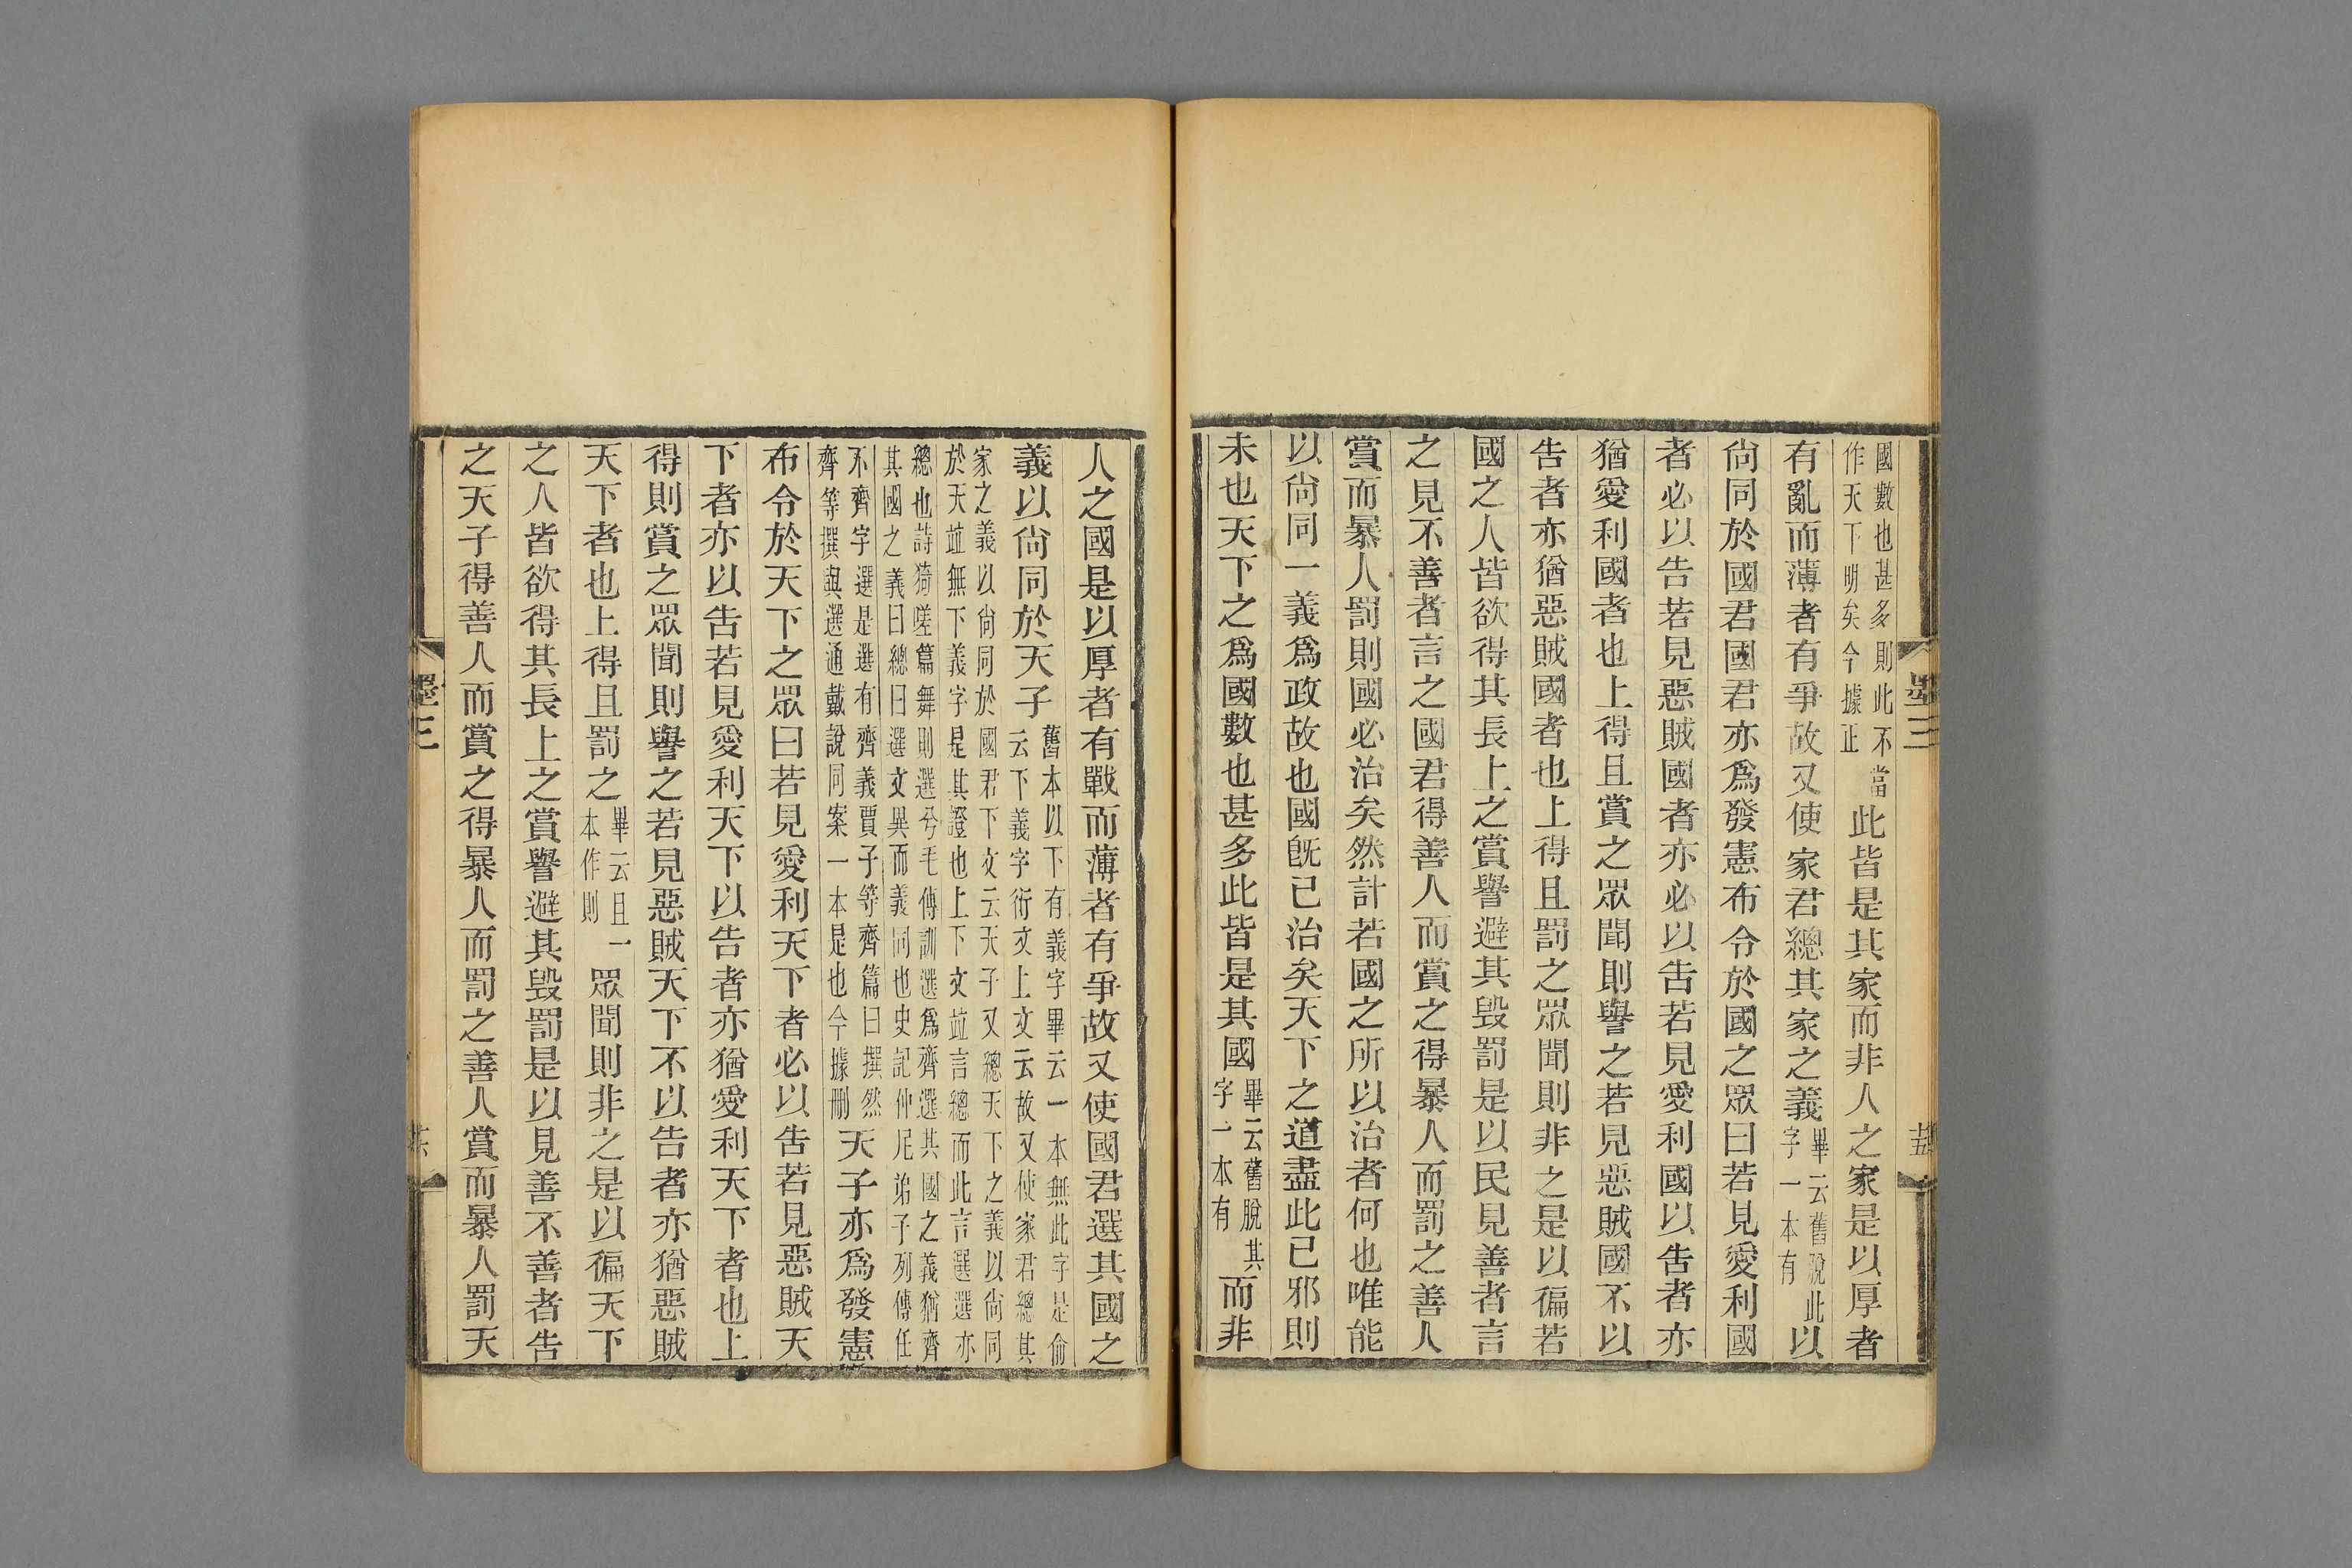 國數也甚多則此不當
作天下明矣今據正
此皆是其家而非人之家是以厚者
有亂而薄者有爭故又使家君總其家之義
畢云舊脫此
字一本有
以
尚同於國君國君亦爲發憲布令於國之眾曰若見愛利國
者必以告若見惡賊國者亦必以告若見愛利國以告者亦
猶愛利國者也上得且賞之眾聞則譽之若見惡賊國不以
告者亦猶惡賊國者也上得且罰之眾聞則非之是以徧若
國之人皆欲得其長上之賞譽避其毀罰是以民見善者言
之見不善者言之國君得善人而賞之得暴人而罰之善人
賞而暴人罰則國必治矣然計若國之所以治者何也唯能
以尚同一義爲政故也國旣已治矣天下之道盡此已邪則
未也天下之爲國數也甚多此皆是其國
畢云舊脫其
字一本有
而非
墨三
人之國是以厚者有戰而薄者有爭故又使國君選其國之
義以尚同於天子
舊本以下有義字畢云一本無此字是俞
云下義字衍文上文云故又使家君總其
家之義以尚同於國君下文云天子又總天下之義以尚同
於天並無下義字是其證也上下文並言總而此言選選亦
總也詩猗嗟篇舞則選兮毛傳訓選爲齊選其國之義猶齊
其國之義曰總曰選文異而義同也史記仲尼弟子列傳任
不齊字選是選有齊義賈子等齊篇曰撰然
齊等撰與選通戴說同案一本是也今據刪
天子亦爲發憲
布令於天下之眾曰若見愛利天下者必以告若見惡賊天
下者亦以告若見愛利天下以告者亦猶愛利天下者也上
得則賞之眾聞則譽之若見惡賊天下不以告者亦猶惡賊
天下者也上得且罰之
畢云且一
本作則
眾聞則非之是以徧天下
之人皆欲得其長上之賞譽避其毀罰是以見善不善者告
之天子得善人而賞之得暴人而罰之善人賞而暴人罰天